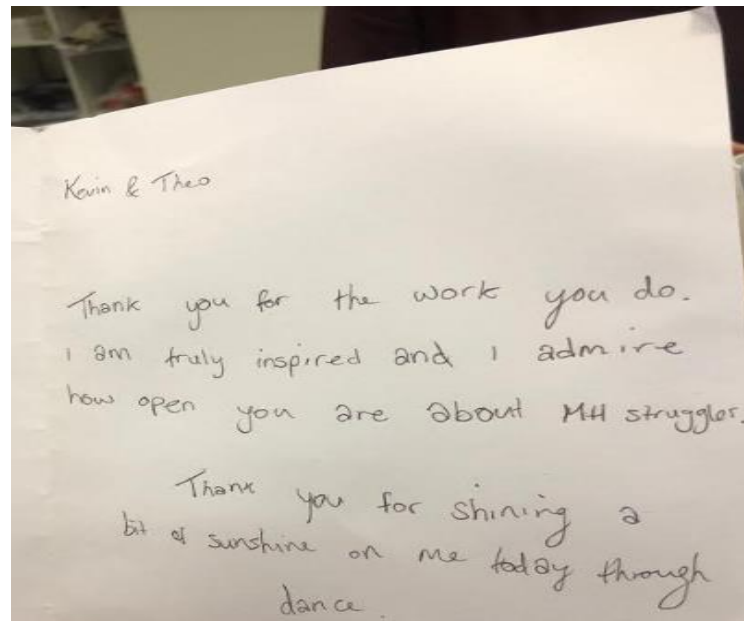 Kevin & Theo
Thank you for the work you do.
I am truly inspired and I admire
how open you are about MH struggles.
Thank you for shining a
bit of sunshine on me today through
dance.